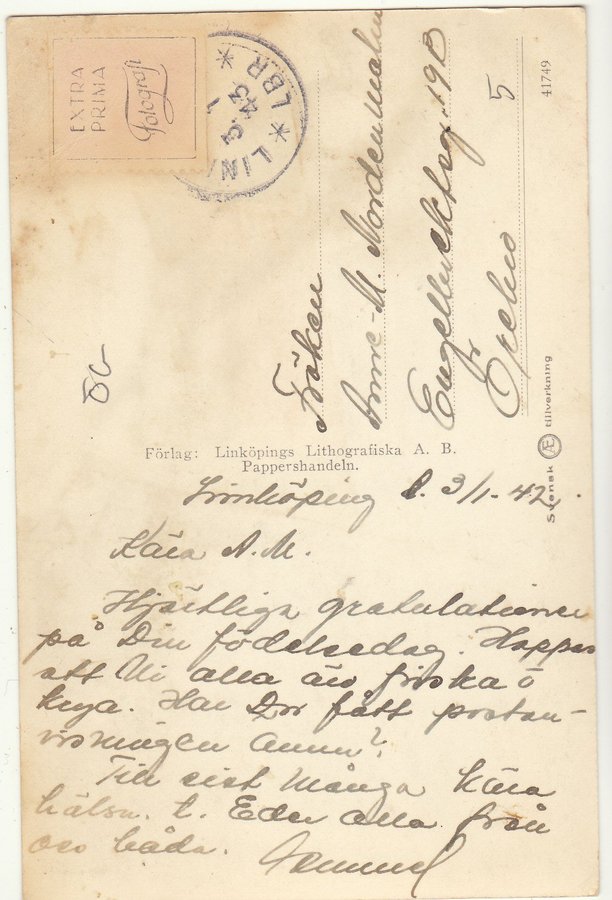 EXTRA
PRIMA
Fotografi
LIN
LBR
3. 1
43
Fröken
Anne-M. Nordenmalm
Engelbrektsg. 19B
5
Örebro
41749
Svensk Æ tillverkning
Förlag: Linköpings Lithografiska A. B.
Pappershandeln.
Linköping d. 3/1. 42.
Kära A. M.
Hjärtliga gratulationer
på Din födelsedag. Hoppas
att Ni alla äro friska o
krya. Har Du fått postan-
visningen ännu?
Till sist många kära
hälsn. t. Eder alla från
oss båda.
Sammel